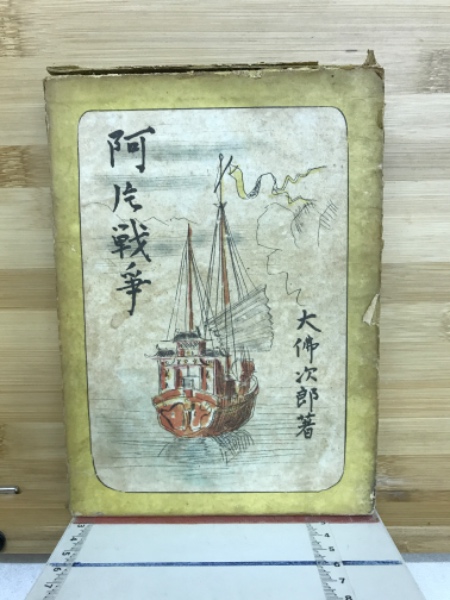 阿片戦爭
大佛次郎著